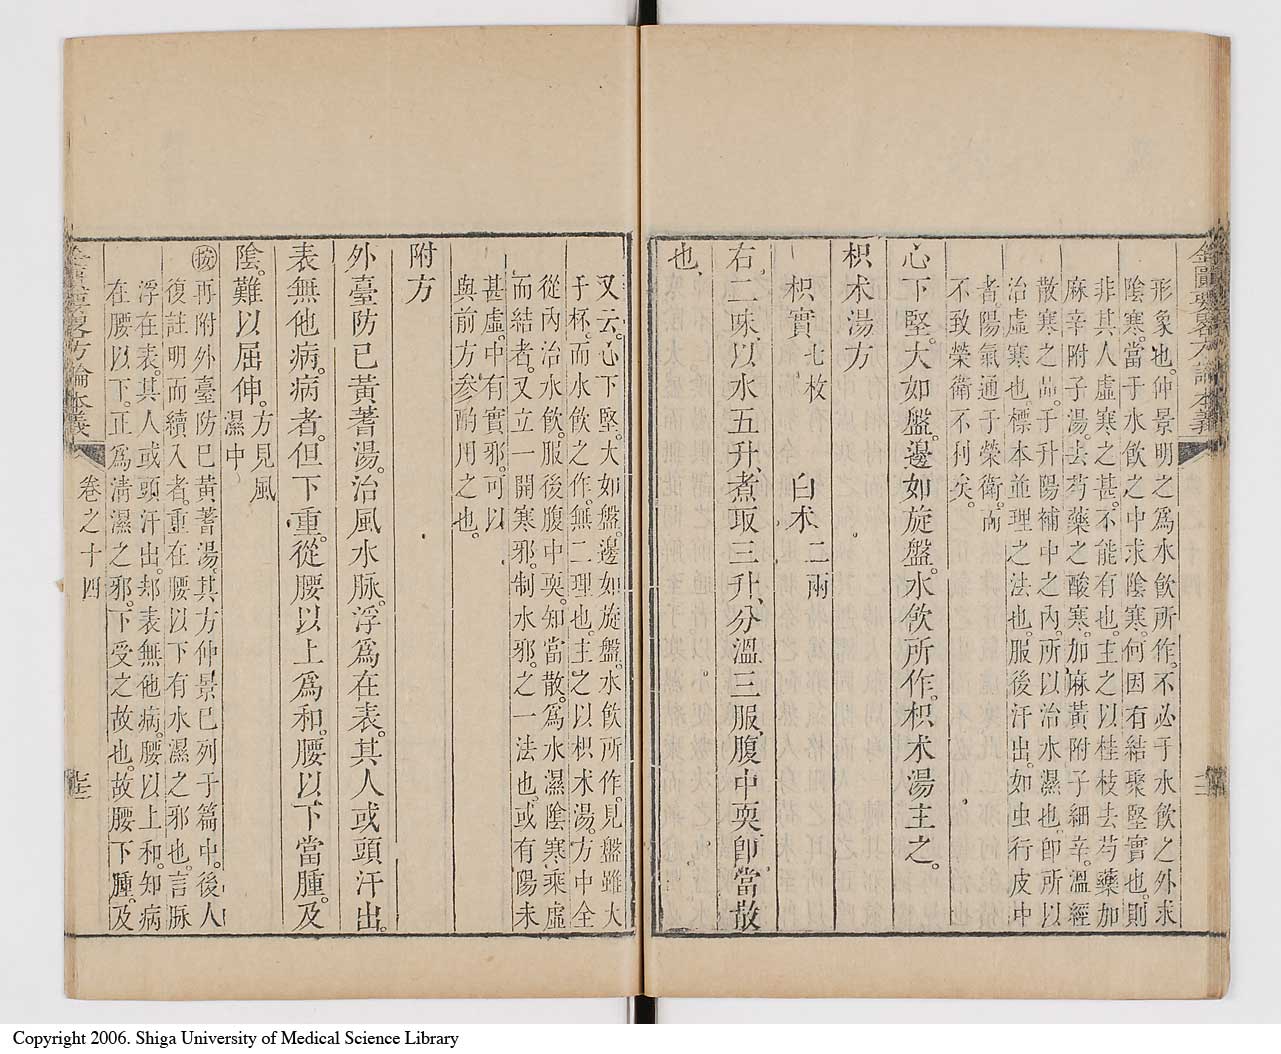 形象也。仲景明之爲水飲所作。不必于水飲之外求
陰寒。當于水飲之中求陰寒。何因有結聚堅實也。則
非其人虛寒之甚。不能有也。主之以桂枝去芍藥加
麻辛附子湯。去芍藥之酸寒。加麻黃附子細辛。溫經
散寒之品。于升陽補中之內。所以治水濕也。卽所以
治虛寒也。標本並理之法也。服後汗出。如虫行皮中
者。陽氣通于榮衛。而
不致榮衛不利矣。
心下堅。大如盤。邊如旋盤。水飲所作。枳术湯主之。
枳术湯方
枳實七枚 白术二兩
右二味。以水五升。煮取三升。分溫三服。腹中耎。卽當散
也。
又云。心下堅。大如盤。邊如旋盤。水飲所作。見盤雖大
于杯。而水飲之作。無二理也。主之以枳术湯。方中全
從內治水飲。服後腹中耎。知當散。爲水濕陰寒。乘虛
而結者。又立一開寒邪。制水邪。之一法也。或有陽未
甚虛。中有實邪。可以
與前方參酌用之也。
附方
外臺防已黃蓍湯。治風水脉。浮爲在表。其人或頭汗出。
表無他病。病者。但下重。從腰以上爲和。腰以下當腫。及
陰。難以屈伸。方見風濕中
按再附外臺防已黃蓍湯。其方仲景已列于篇中。後人
復註明而續入者。重在腰以下有水濕之邪也。言脉
浮在表。其人或頭汗出。却表無他病。腰以上和。知病
在腰以下。正爲淸濕之邪。下受之故也。故腰下腫。及
金匱要畧方論本義
卷之十四